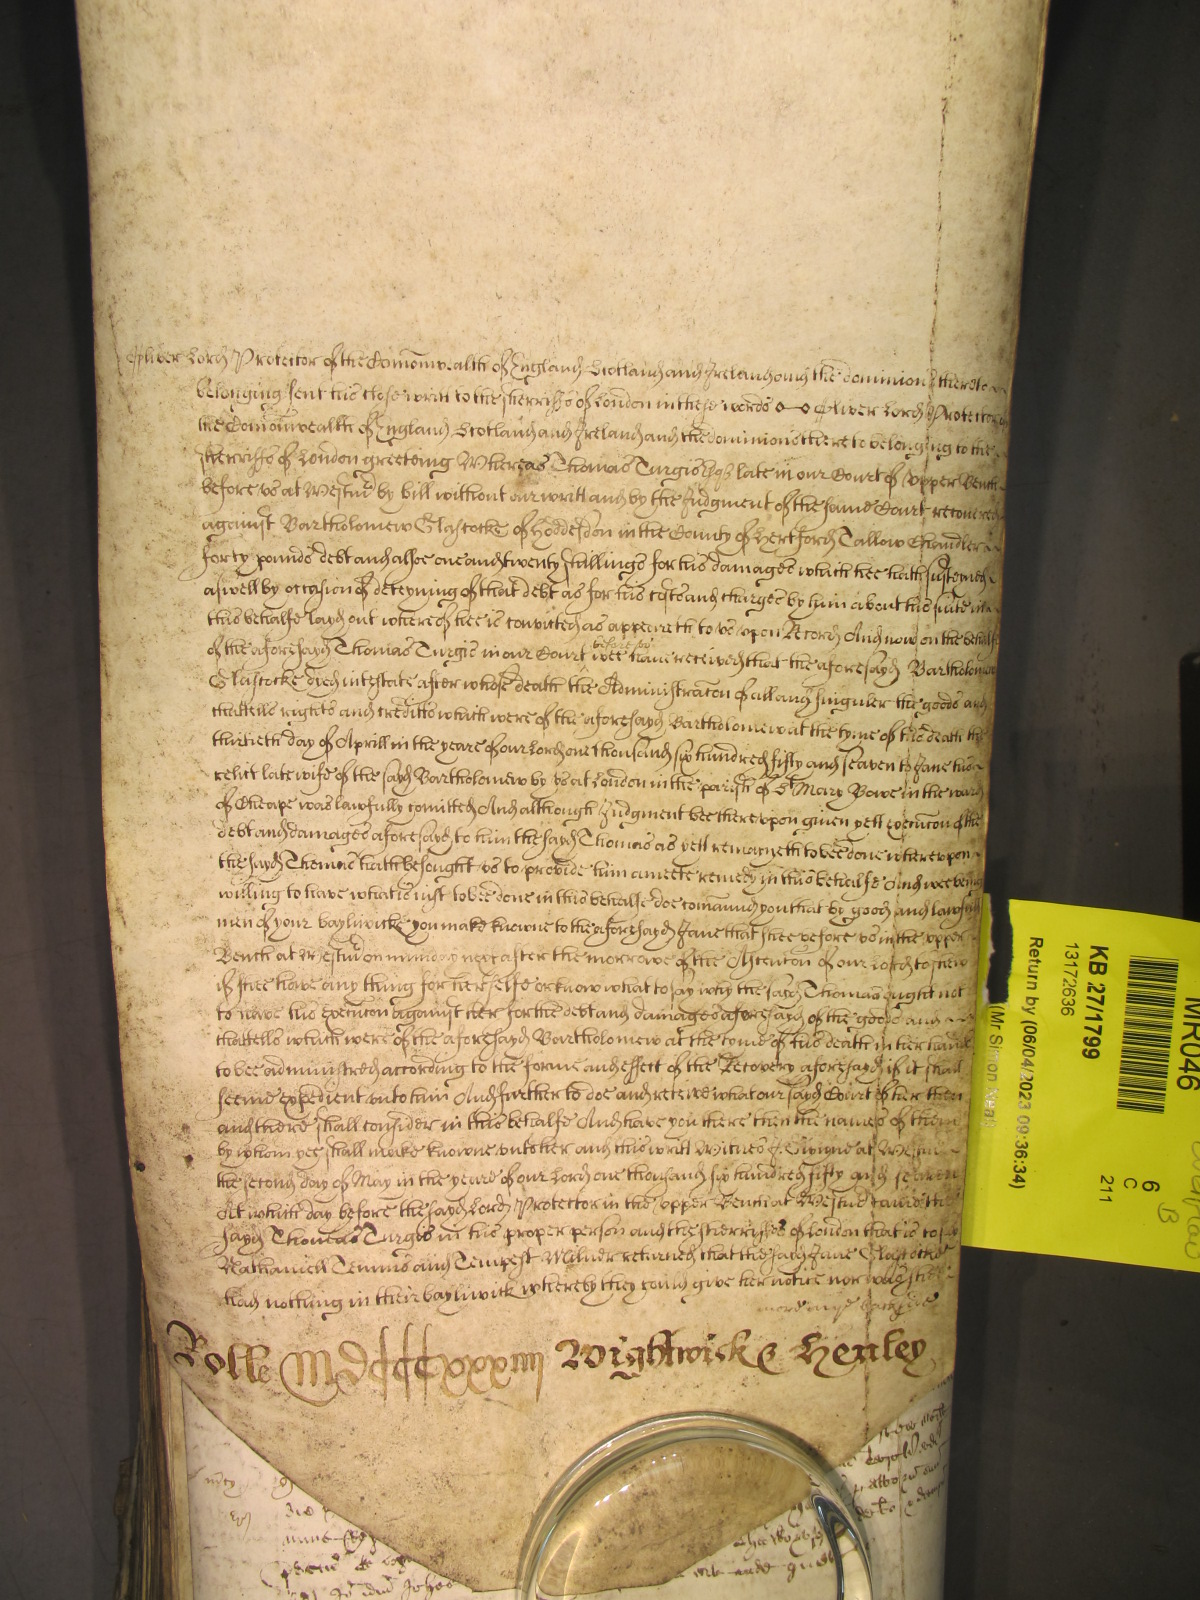 Oliver Lord Protector of the Comonwealth of England Scotland and Ireland and the dominions thereto
belonging sent his close writt to the sherriffs of London in these words Oliver Lord Protector of
the Comonwealth of England Scotland and Ireland and the dominions thereto belonging to the
sherriffs of London greeteing Whereas Thomas Turgis late in our Court of Upper Bench
before us at Westmr by bill without our writt and by the Judgment of the same Court recovered
against Bartholomew Glascocke of Hoddesdon in the County of Hertford Tallow Chandler
forty pounds debt and alsoe one and twenty shillings for his damages which hee hath susteined
aswell by occasion of deteyning of that debt as for his costs and charges by him about his suite in
this behalfe layd out whereof hee is convicted as appeareth to us upon Record And now on the behalfe
of the aforesayd Thomas Turgis in our Court before us wee have received that the aforesayd Bartholomew
Glascocke died intestate after whose death the Administracon of all and singuler the goods and
chattells rights and creditts which were of the aforesayd Bartholomew at the tyme of his death the
thirtieth day of Aprill in the yeare of our Lord one thousand six hundred fifty and seaven to Jane
relict late wife of the sayd Bartholomew by us at London in the parish of St Mary Bowe in the ward
of Cheape was lawfully comitted And although Judgment bee thereupon given yett execucon of the
debt and damages aforesayd to him the sayd Thomas as yett remayneth to bee done whereupon
the sayd Thomas hath besought us to provide him a meete remedy in this behalfe And wee being
willing to have what is just to bee done in this behalfe doe comaund you that by good and lawfull
men of your bayliwicke you make knowne to the aforesayd Jane that shee before us in the upper
Bench at Westmr on munday next after the morrowe of the Ascention of our Lord to shew
if shee have any thing for her selfe or know what to say why the sayd Thomas ought not
to have his execucon against her for the debt and damages aforesayd of the goods and
chattells which were of the aforesayd Bartholomew at the tyme of his death in her hands
to bee administred according to the forme and effect of the Recovery aforesayd if it shall
seeme expedient unto him And further to doe and receive what our sayd Court of her then
and there shall consider in this behalfe And have you there then the names of them
by whom yee shall make knowne unto her and this writt Witnes at Westmr
the second day of May in the yeare of our Lord one thousand six hundred fifty and seaven
At which day before the sayd Lord Protector in the upper Bench at Westmr came the
sayd Thomas Turgis in his proper person and the sherriffes of London that is to say
Nathaniell Temms and Tempest Milner returned that the sayd Jane Glascocke
had nothing in their bayliwick whereby they could give her notice nor was shee
Rolle MDCCCCxxxiiii Wightwick & Henley
MR046
KB 27/1799
13172636
6
C
211
Return by (06/04/2023 09:36:34)